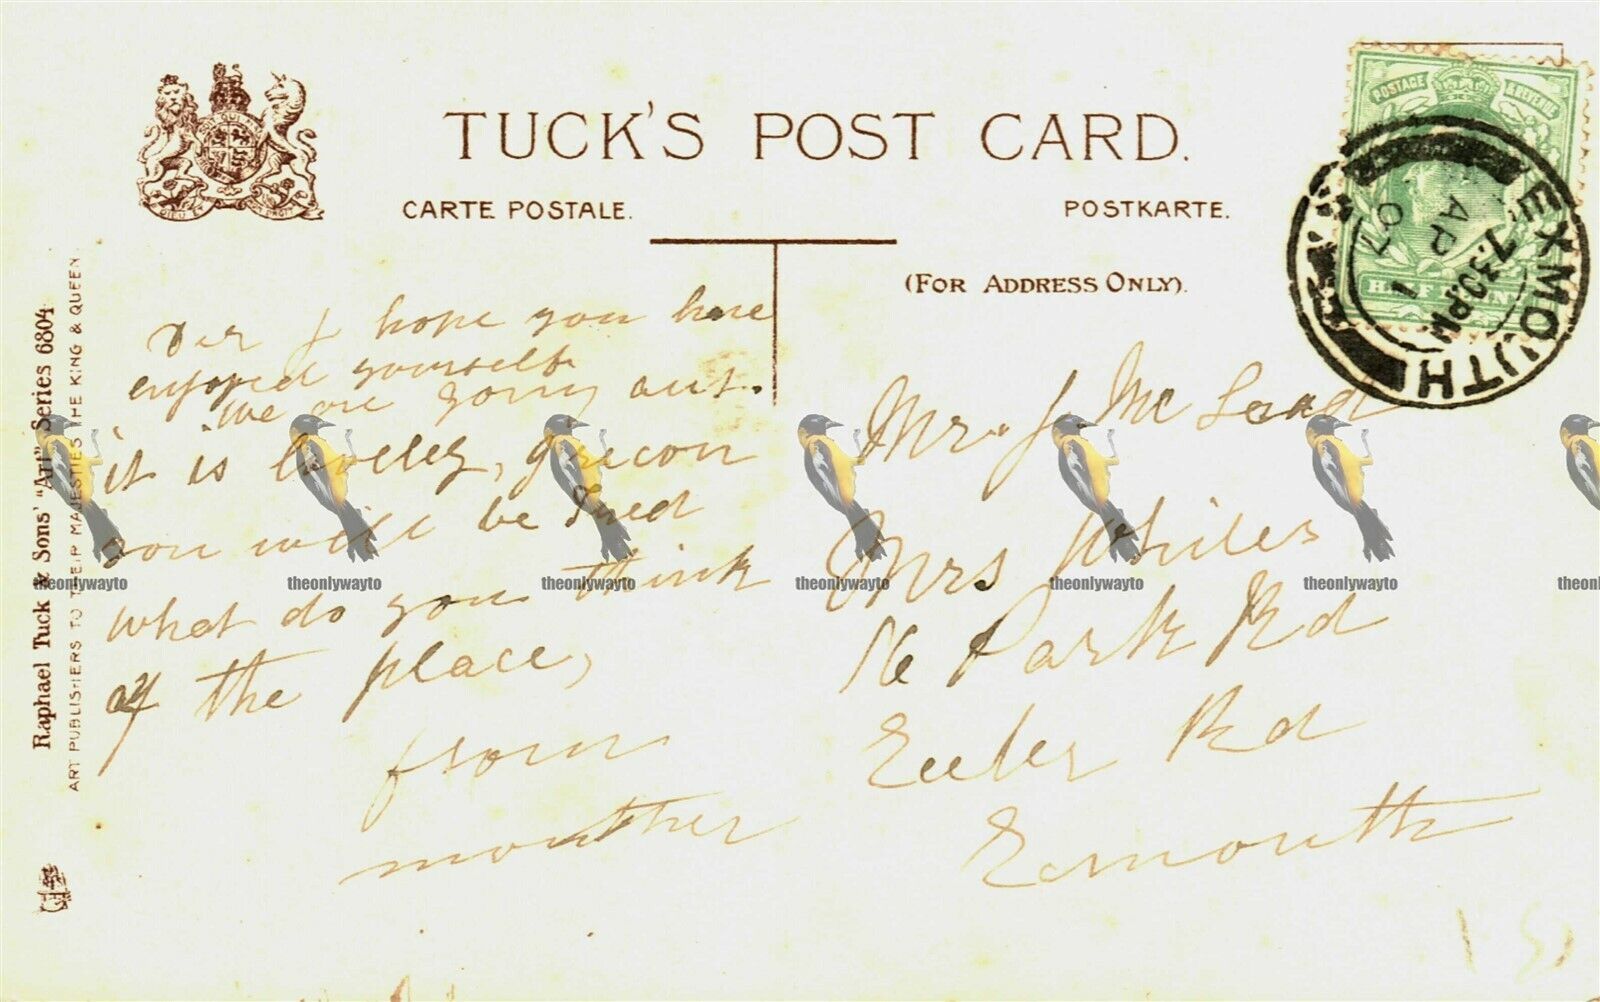 TUCK'S POST CARD.
CARTE POSTALE.
POSTKARTE.
(FOR ADDRESS ONLY).
Raphael Tuck & Sons' "Art" Series 6804
ART PUBLISHERS TO THEIR MAJESTIES THE KING & QUEEN
POSTAGE & REVENUE
HALF PENNY
EXMOUTH
7.30PM
AP 1
07
I hope you have
enjoyed yourself
we are sorry
it is loveley,
you will be Tired
what do you think
of the place,
from
mouther
Mr. J. Mc
Mrs Whiles
16 Park Rd
Rd
Exmouth
theonlywayto
theonlywayto
theonlywayto
theonlywayto
theonlywayto
theonlywayto
theonl